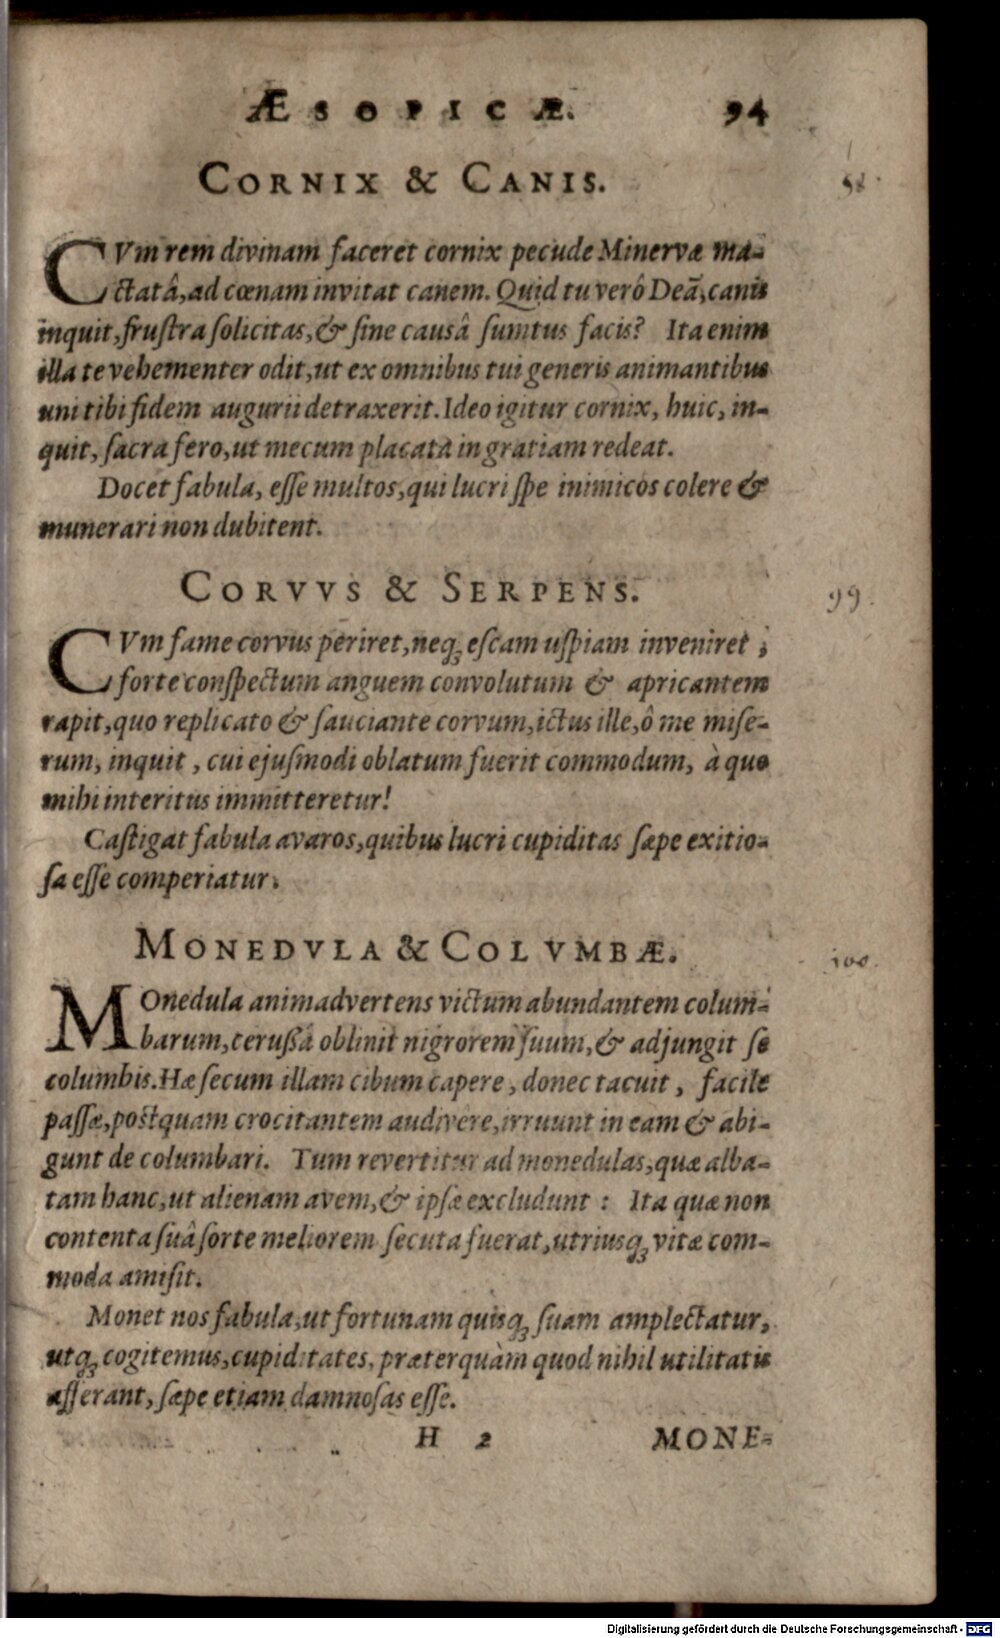 ÆSOPICÆ. 94
CORNIX & CANIS.
98.
CVm rem divinam faceret cornix pecude Minervæ ma-
ctatâ, ad cœnam invitat canem. Quid tu verô Deã, canis
inquit, frustra solicitas, & sine causâ sumtus facis? Ita enim
illa te vehementer odit, ut ex omnibus tui generis animantibus
uni tibi fidem augurii detraxerit. Ideo igitur cornix, huic, in-
quit, sacra fero, ut mecum placata in gratiam redeat.
Docet fabula, esse multos, qui lucri spe inimicos colere &
munerari non dubitent.
CORVVS & SERPENS.
99.
CVm fame corvus periret, neq; escam uspiam inveniret ;
forte conspectum anguem convolutum & apricantem
rapit, quo replicato & sauciante corvum, ictus ille, ô me mise-
rum, inquit, cui ejusmodi oblatum fuerit commodum, à quo
mihi interitus immitteretur!
Castigat fabula avaros, quibus lucri cupiditas sæpe exitio-
sa esse comperiatur.
MONEDVLA & COLVMBÆ.
100.
MOnedula animadvertens victum abundantem colum-
barum, cerußâ oblinit nigrorem suum, & adjungit se
columbis. Hæ secum illam cibum capere, donec tacuit, facile
passæ, postquam crocitantem audivere, irruunt in eam & abi-
gunt de columbari. Tum revertitur ad monedulas, quæ alba-
tam hanc, ut alienam avem, & ipsæ excludunt : Ita quæ non
contenta suâ sorte meliorem secuta fuerat, utriusq; vitæ com-
moda amisit.
Monet nos fabula, ut fortunam quisq; suam amplectatur,
utq; cogitemus, cupiditates, præterquàm quod nihil utilitatis
afferant, sæpe etiam damnosas esse.
H 2 MONE-
Digitalisierung gefördert durch die Deutsche Forschungsgemeinschaft - DFG